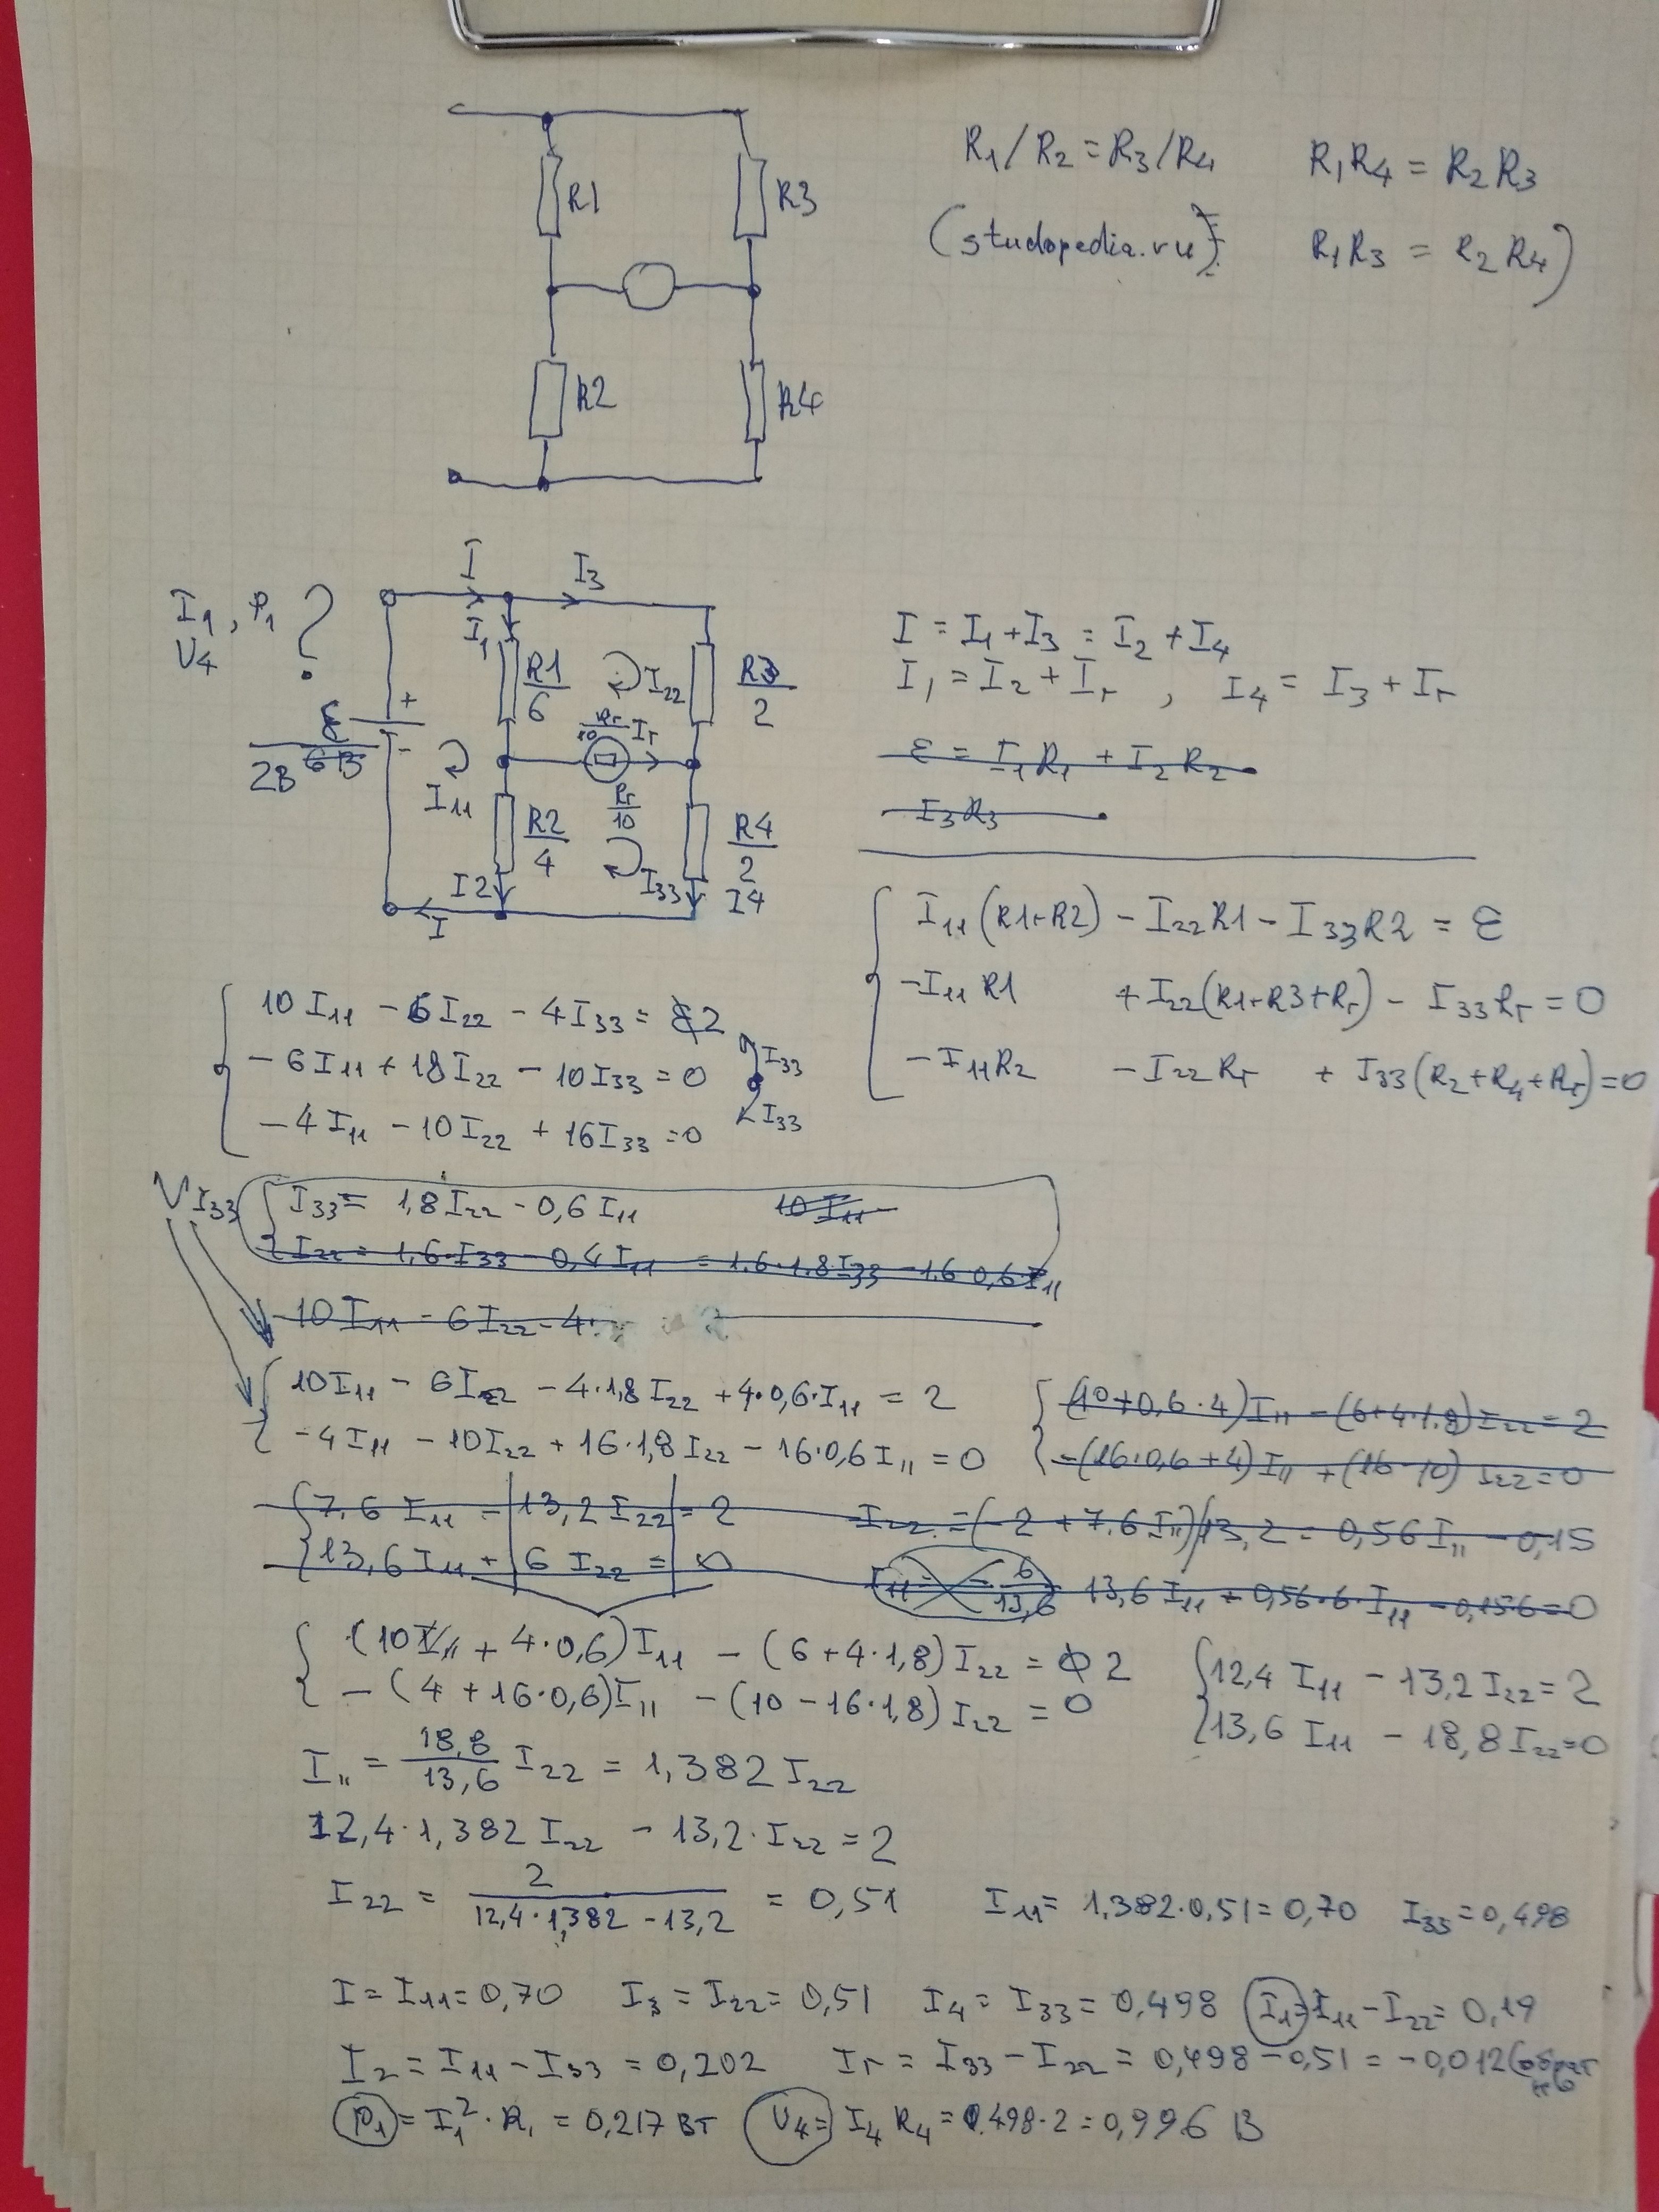 R1 R3
R2 R4
R₁/R₂ = R₃/R₄ R₁R₄ = R₂R₃
(studopedia.ru) R₁R₃ = R₂R₄)
I₁, P₁ ?
U₄
I I₃
I₁ R1/6 I₂₂ R3/2
Rг/10 Iг
ε +
2В 6В -
I₁₁ Rг/10
R2/4 R4/2
I2 I₃₃ I4
I
I = I₁ + I₃ = I₂ + I₄
I₁ = I₂ + Iг , I₄ = I₃ + Iг
ε = I₁R₁ + I₂R₂
I₃R₃
I₁₁(R1+R2) - I₂₂R1 - I₃₃R2 = ε
-I₁₁R1 + I₂₂(R1+R3+Rг) - I₃₃Rг = 0
-I₁₁R2 - I₂₂Rг + I₃₃(R₂+R₄+Rг) = 0
10I₁₁ - 6I₂₂ - 4I₃₃ = 2
-6I₁₁ + 18I₂₂ - 10I₃₃ = 0
-4I₁₁ - 10I₂₂ + 16I₃₃ = 0
I₃₃
I₃₃
I₃₃
I₃₃ = 1,8I₂₂ - 0,6I₁₁ 10I₁₁
I₂₂ = 1,6·I₃₃ - 0,4I₁₁ = 1,6·1,8I₃₃ - 1,6·0,6I₁₁
10I₁₁ - 6I₂₂ - 4·
10I₁₁ - 6I₂₂ - 4·1,8I₂₂ + 4·0,6·I₁₁ = 2
-4I₁₁ - 10I₂₂ + 16·1,8I₂₂ - 16·0,6I₁₁ = 0
(10+0,6·4)I₁₁ - (6+4·1,8)I₂₂ = 2
-(16·0,6+4)I₁₁ + (16-10)I₂₂ = 0
7,6I₁₁ - 13,2I₂₂ = 2
13,6I₁₁ + 6I₂₂ = 0
I₂₂ = (-2 + 7,6I₁₁)/13,2 = 0,56I₁₁ - 0,15
I₁₁ = -6/13,6 13,6I₁₁ + 0,56·6·I₁₁ - 0,15·6 = 0
(10 + 4·0,6)I₁₁ - (6+4·1,8)I₂₂ = 2
-(4+16·0,6)I₁₁ - (10-16·1,8)I₂₂ = 0
12,4I₁₁ - 13,2I₂₂ = 2
13,6I₁₁ - 18,8I₂₂ = 0
I₁₁ = 18,8/13,6 I₂₂ = 1,382I₂₂
12,4·1,382I₂₂ - 13,2·I₂₂ = 2
I₂₂ = 2/(12,4·1,382 - 13,2) = 0,51 I₁₁ = 1,382·0,51 = 0,70 I₃₃ = 0,498
I = I₁₁ = 0,70 I₃ = I₂₂ = 0,51 I₄ = I₃₃ = 0,498 I₁ = I₁₁ - I₂₂ = 0,19
I₂ = I₁₁ - I₃₃ = 0,202 Iг = I₃₃ - I₂₂ = 0,498 - 0,51 = -0,012
P₁ = I₁²·R₁ = 0,217 Вт U₄ = I₄R₄ = 0,498·2 = 0,996 В